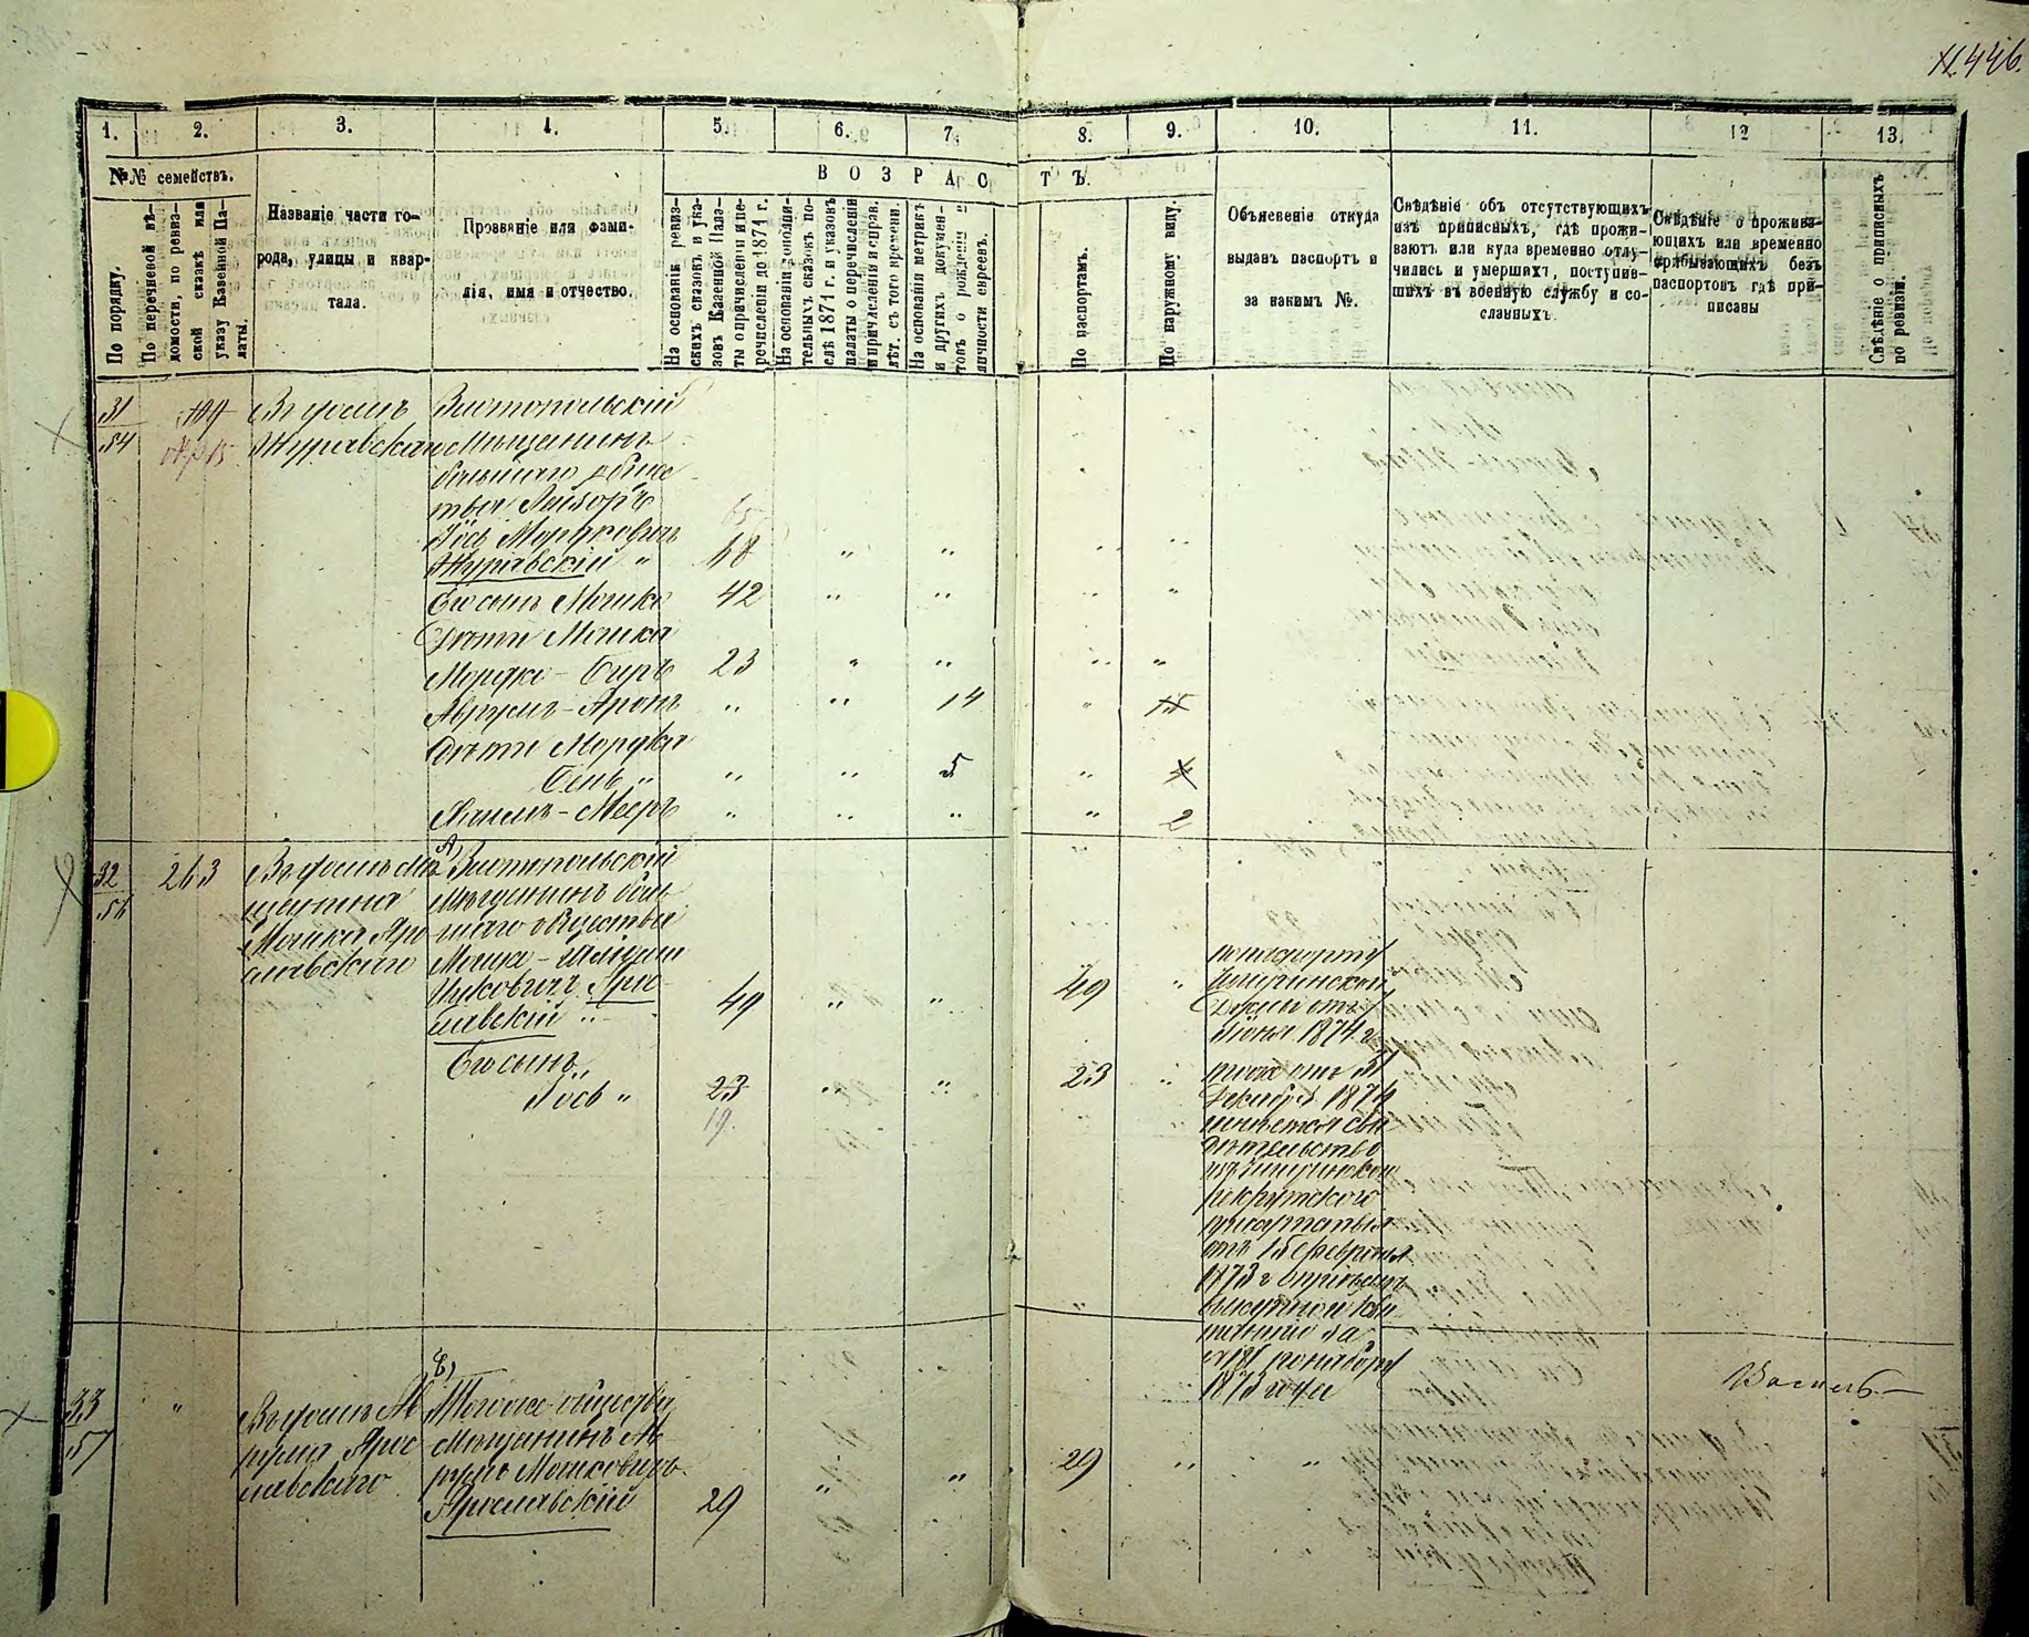 446.
1.
2.
3.
4.
5.
6.
7.
8.
9.
10.
11.
12
13.
№№ семействъ.
По порядку.
По перечневой вѣ-
домости, по ревиз-
ской сказкѣ или
указу Казенной Па-
латы.
Названіе части го-
рода, улицы и квар-
тала.
Прозваніе или фами-
лія, имя и отчество.
ВОЗРАСТЪ.
На основаніи ревиз-
скихъ сказокъ и ука-
зовъ Казенной Пала-
ты о причисленіи и пе-
речисленіи до 1871 г.
На основаніи дополни-
тельныхъ сказокъ по-
слѣ 1871 г. и указовъ
палаты о перечисленіи
и причисленіи и справ.
лѣт. съ того времени.
На основаніи метрикъ
и другихъ докумен-
товъ о рожденіи и
личности евреевъ.
По паспортамъ.
По наружному виду.
Объясненіе откуда
выданъ паспортъ и
за какимъ №.
Свѣдѣніе объ отсутствующихъ
изъ приписныхъ, гдѣ прожи-
ваютъ или куда временно отлу-
чились и умершихъ, поступив-
шихъ въ военную службу и со-
сланныхъ.
Свѣдѣніе о прожива-
ющихъ или временно
прибывающихъ безъ
паспортовъ гдѣ при-
писаны
Свѣдѣніе о приписныхъ
по ревизіи.
31
54
Въ домѣ
Журавскаго
Златопольскій
Мѣщанинъ
бывшаго обще
ства
Іось Мордковичъ
Журавскій " 68 " " " "
Его сынъ Мошко 42 " " " "
Дѣти Мошка
Мордко - Беръ 23 " " " "
Аврумъ - Аронъ " " 14 " 15
Дѣти Мордка
" " " 5 " 4
Хаимъ - Мееръ " " " " 2
32
56
263
Въ домѣ мѣ
щанина
Мошка Яро
славскаго
А)
Златопольскій
Мѣщанинъ быв
шаго общества
Мошка -
Ицковичъ Яро
славскій " 49 " " 49 "
по паспорту
Думы отъ 7
Іюня 1874 г.
Его сынъ
Іось " 23 " " 23 "
19.
тоже отъ 31
Декабря 1874
имѣется сви
дѣтельство
рекрутскаго
присутствія
отъ 15 февраля
1873 г о пріемѣ
выкупной кви
танціи за
по набору
1873 года
33
57
"
Въ домѣ Ав
рума Ярос
лавскаго
Б)
Тогоже общества
Мѣщанинъ Ав
румъ Мошковичъ
Ярославскій 29 " " 29 " "